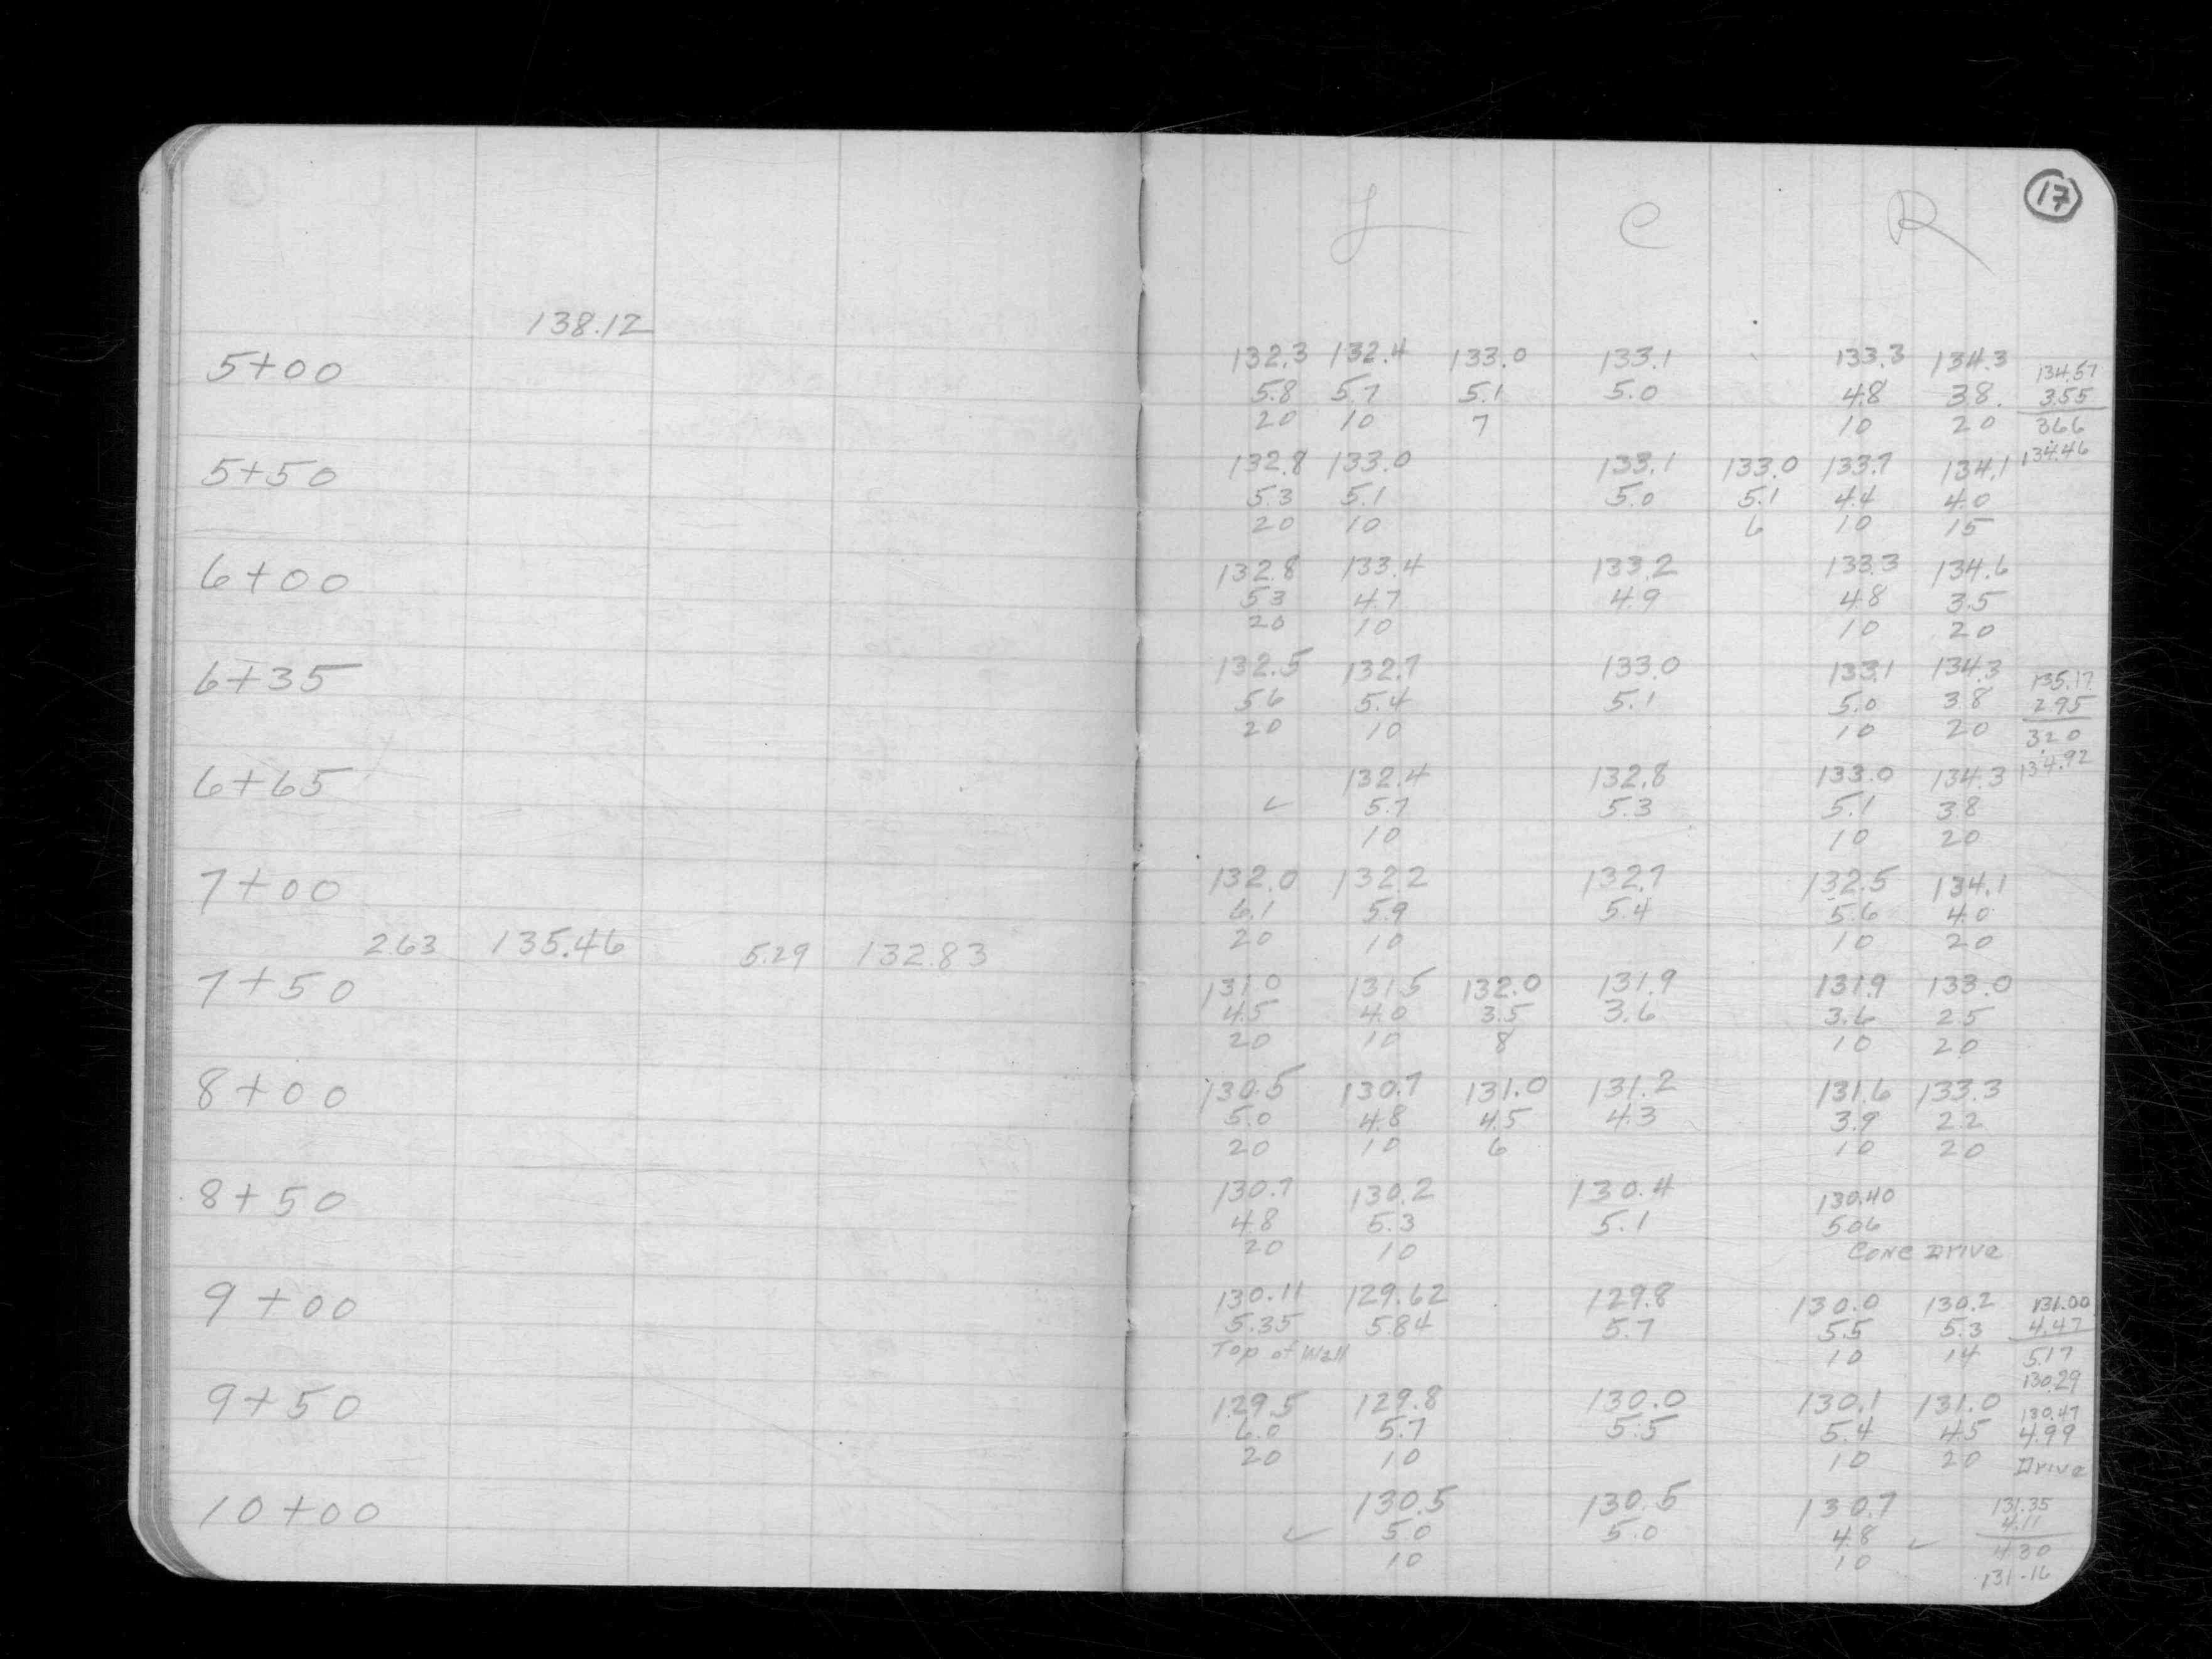 17
L C R
138.12
5+00 132.3 132.4 133.0 133.1 133.3 134.3 134.57
5.8 5.7 5.1 5.0 4.8 3.8 3.55
20 10 7 10 20 3.66
134.46
5+50 132.8 133.0 133.1 133.0 133.7 134.1
5.3 5.1 5.0 5.1 4.4 4.0
20 10 6 10 15
6+00 132.8 133.4 133.2 133.3 134.6
5.3 4.7 4.9 4.8 3.5
20 10 10 20
6+35 132.5 132.7 133.0 133.1 134.3 135.17
5.6 5.4 5.1 5.0 3.8 2.95
20 10 10 20 3.20
134.92
6+65 132.4 132.8 133.0 134.3
✓ 5.7 5.3 5.1 3.8
10 10 20
7+00 132.0 132.2 132.7 132.5 134.1
6.1 5.9 5.4 5.6 4.0
2.63 135.46 5.29 132.83 20 10 10 20
7+50 131.0 131.5 132.0 131.9 131.9 133.0
4.5 4.0 3.5 3.6 3.6 2.5
20 10 8 10 20
8+00 130.5 130.7 131.0 131.2 131.6 133.3
5.0 4.8 4.5 4.3 3.9 2.2
20 10 6 10 20
8+50 130.7 130.2 130.4 130.40
4.8 5.3 5.1 5.06
20 10 Conc Drive
9+00 130.11 129.62 129.8 130.0 130.2 131.00
5.35 5.84 5.7 5.5 5.3 4.47
Top of Wall 10 14 5.17
130.29
9+50 129.5 129.8 130.0 130.1 131.0 130.47
6.0 5.7 5.5 5.4 4.5 4.99
20 10 10 20 Drive
10+00 130.5 130.5 130.7 131.35
✓ 5.0 5.0 4.8 ✓ 4.11
10 10 4.30
131.16